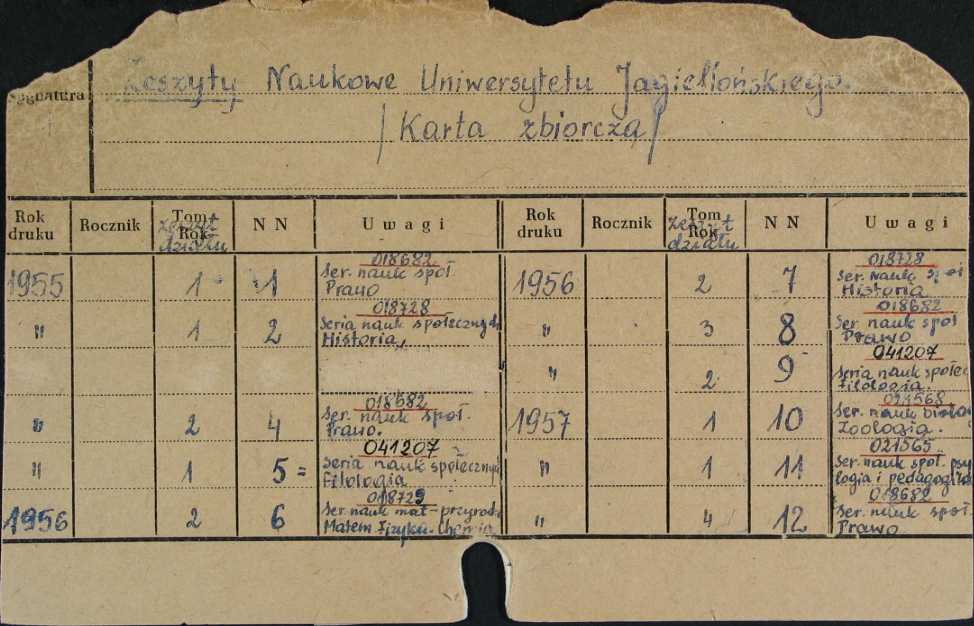 Zeszyty Naukowe Uniwersytetu Jagiellońskiego.
Sygnatura
/Karta zbiorcza/
Rok druku Rocznik Tom Rok zeszyt działu NN Uwagi
1955 1 1 018682 Ser. nauk społ. Prawo
" 1 2 018728 Seria nauk społecznych Historia
" 2 4 018682 Ser. nauk społ. Prawo.
" 1 5= 041207 Seria nauk społecznych Filologia
1956 2 6 018729 Ser. nauk mat-przyrod. Matem. Fizyka. Chemia
Rok druku Rocznik Tom Rok zeszyt działu NN Uwagi
1956 2 7 018728 Ser. Nauk społ Historia
" 3 8 018682 Ser. nauk społ Prawo
" 2 9 041207 Seria nauk społec Filologia.
1957 1 10 Ser. nauk biolog Zoologia.
" 1 11 021565 Ser. nauk społ. psychologia i pedagogika
" 4 12 018682 Ser. nauk społ. Prawo